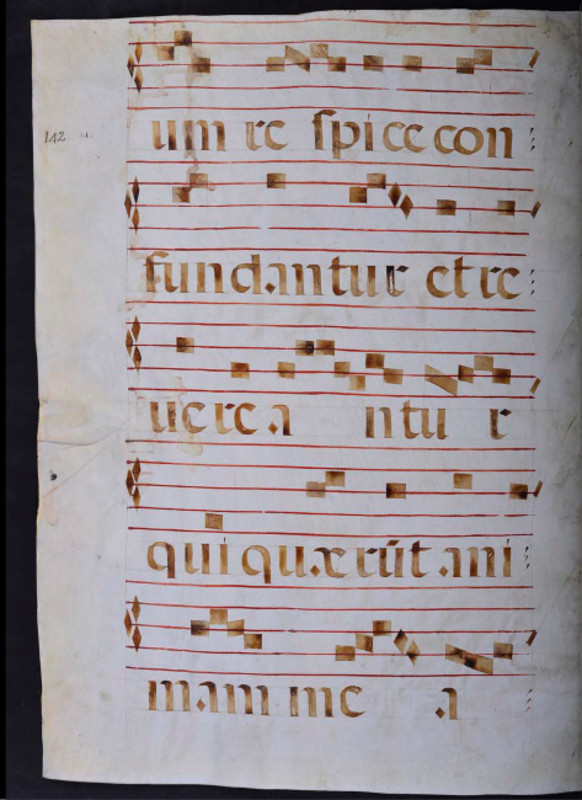 142
um re spice con
fundantur et re
uerea ntu r
qui quærũt ani
mam me a